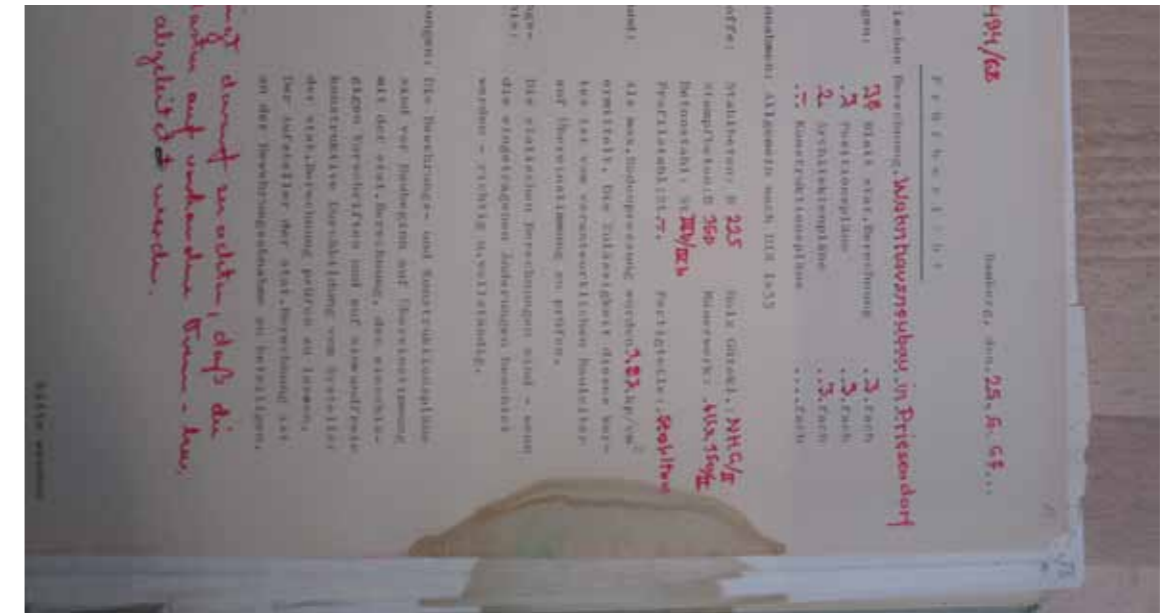 494/68
Bamberg, den 25. 6. 68...
Prüfbericht
ischen Berechnung Wohnhausneubau in Priesendorf
gen: 38 Blatt stat.Berechnung ..3.fach
.2 Positionspläne ..3.fach
2 Architektenpläne ..3.fach
..- Konstruktionspläne ....fach
nnahmen: Allgemein nach DIN 1055
offe: Stahlbeton: B 225 Holz Güzekl.: NHG/II
Stampfbeton:B 160 Mauerwerk:
Betonstahl: St IIIb/IVb
Profilstahl:St.-. Fertigteile: Stahlton
und: Als max.Bodenpressung wurden 3,23 kp/cm²
ermittelt. Die Zulässigkeit dieses Wer-
tes ist vom verantwortlichen Bauleiter
auf Übereinstimmung zu prüfen.
nge-
nis: Die statischen Berechnungen sind - wenn
die eingetragenen Änderungen beachtet
werden - richtig u.vollständig.
ungen: Die Bewehrungs- und Konstruktionspläne
sind vor Baubeginn auf Übereinstimmung
mit der stat.Berechnung, den einschlä-
gigen Vorschriften und auf einwandfreie
konstruktive Durchbildung vom Ersteller
der stat.Berechnung prüfen zu lassen.
Der Aufsteller der stat.Berechnung ist
an der Bewehrungsabnahme zu beteiligen.
darauf zu achten, daß die
auf vorhandene
abgeleitet werden.
Bitte wenden